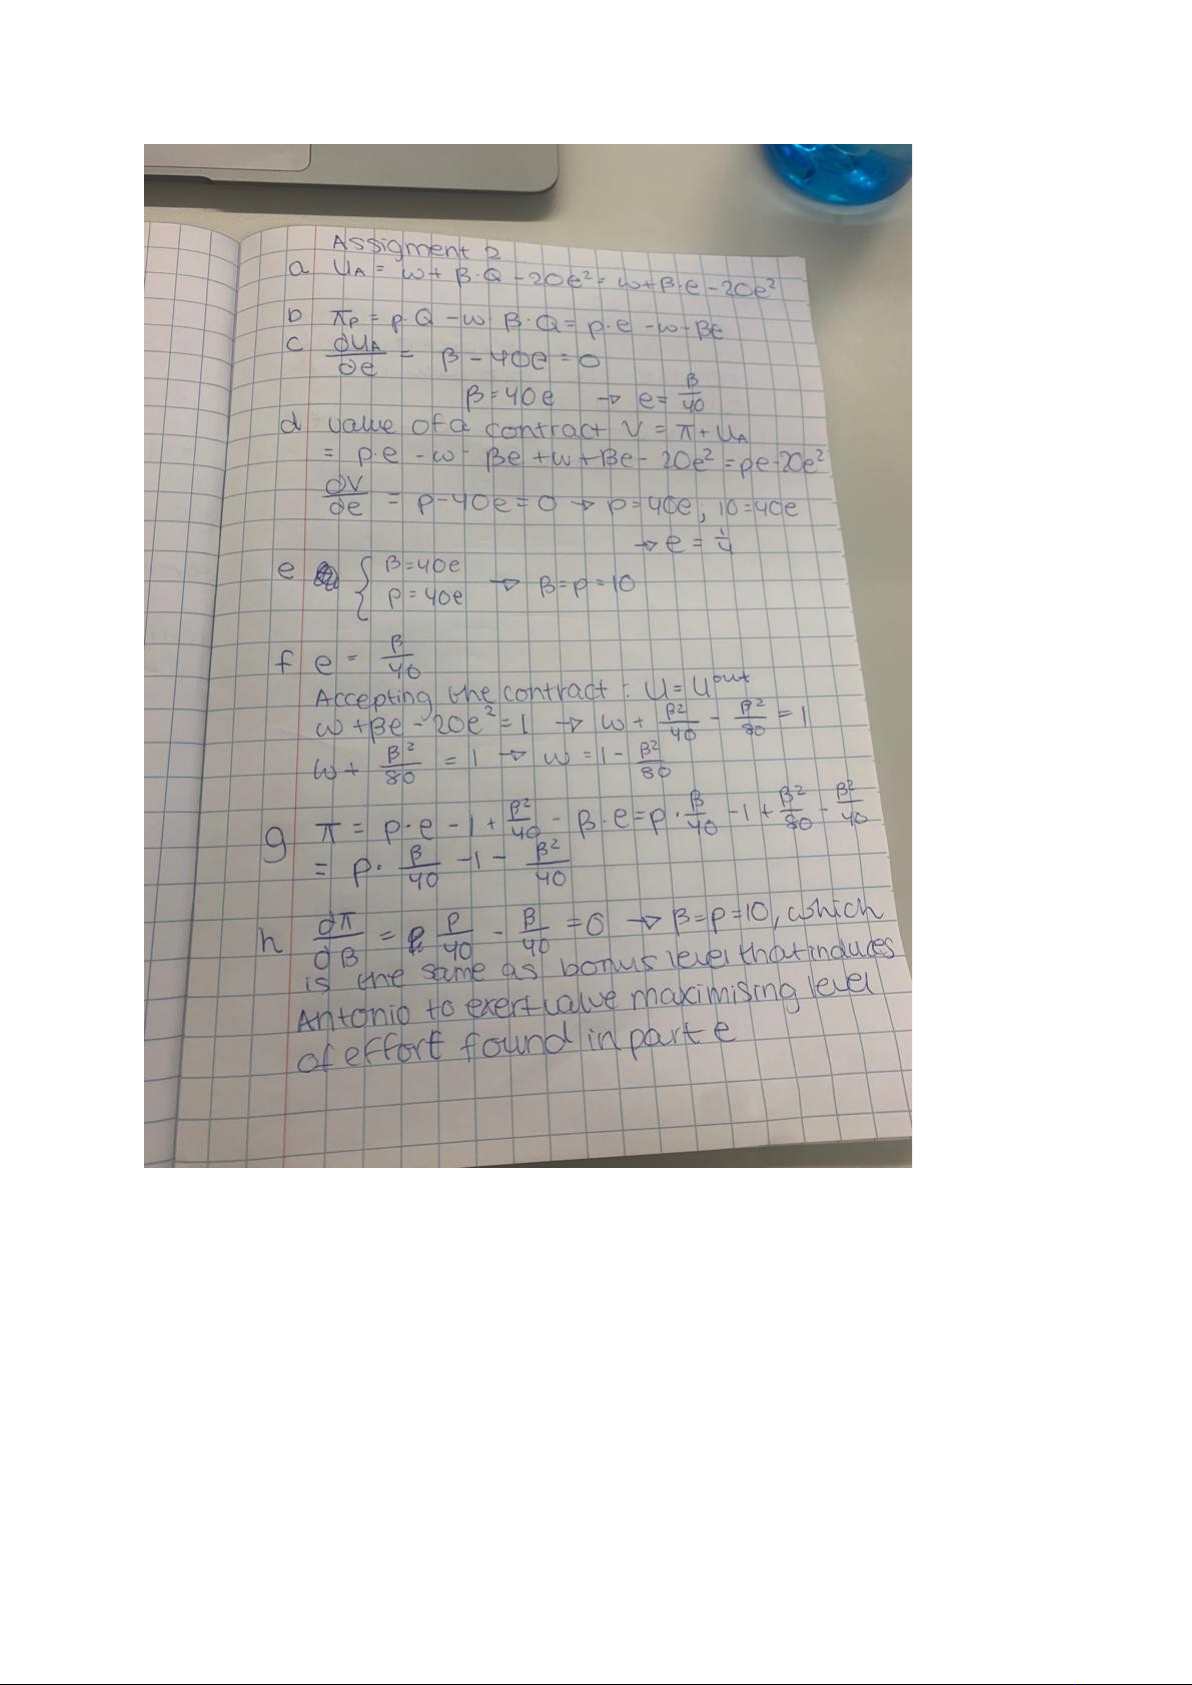 Assigment 2
a U_A = w + β·Q - 20e² = w+β·e - 20e²
b π_P = p·Q - w β·Q = p·e - w - βe
c ∂U_A/∂e = β - 40e = 0
β=40e → e = β/40
d value of a contract V = π + U_A
= p·e - w - βe + w + βe - 20e² = pe - 20e²
∂V/∂e = p - 40e = 0 → p=40e; 10=40e
→ e = 1/4
e { β=40e
p=40e → β=p=10
f e = β/40
Accepting the contract: U = U^out
w + βe - 20e² = 1 → w + β²/40 - β²/80 = 1
w + β²/80 = 1 → w = 1 - β²/80
g π = p·e - 1 + β²/40 - β·e = p·β/40 - 1 + β²/80 - β²/40
= p·β/40 - 1 - β²/40
h dπ/dβ = p/40 - β/40 = 0 → β=p=10, which
is the same as bonus level that induces
Antonio to exert value maximising level
of effort found in part e